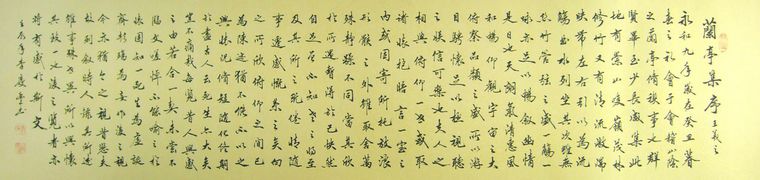 蘭亭集序 王羲之
永和九年歲在癸丑暮
春之初會于會稽山陰
之蘭亭脩禊事也群
賢畢至少長咸集此
地有崇山峻嶺茂林
修竹又有清流激湍
映帶左右引以為流
觴曲水列坐其次雖無
絲竹管弦之盛一觴一
詠亦足以暢敘幽情
是日也天朗氣清惠風
和暢仰觀宇宙之大
俯察品類之盛所以游
目騁懷足以極視聽
之娛信可樂也夫人之
相與俯仰一世或取
諸懷抱晤言一室之
內或因寄所託放浪
形骸之外雖取舍萬
殊靜躁不同當其欣
於所遇暫得於己快然
自足不知老之將至
及其所之既倦情隨
事遷感慨系之矣向
之所欣俯仰之間已
為陳迹猶不能不以之
興懷況脩短隨化終期
於盡古人云死生亦大矣
豈不痛哉每覽昔人興感
之由若合一契未嘗不
臨文嗟悼不能喻之於
懷固知一死生為虛誕
齊彭殤為妄作後之視
今亦猶今之視昔悲夫
故列敘時人錄其所述
雖世殊事異所以興懷
其致一也後之覽者亦
將有感於斯文